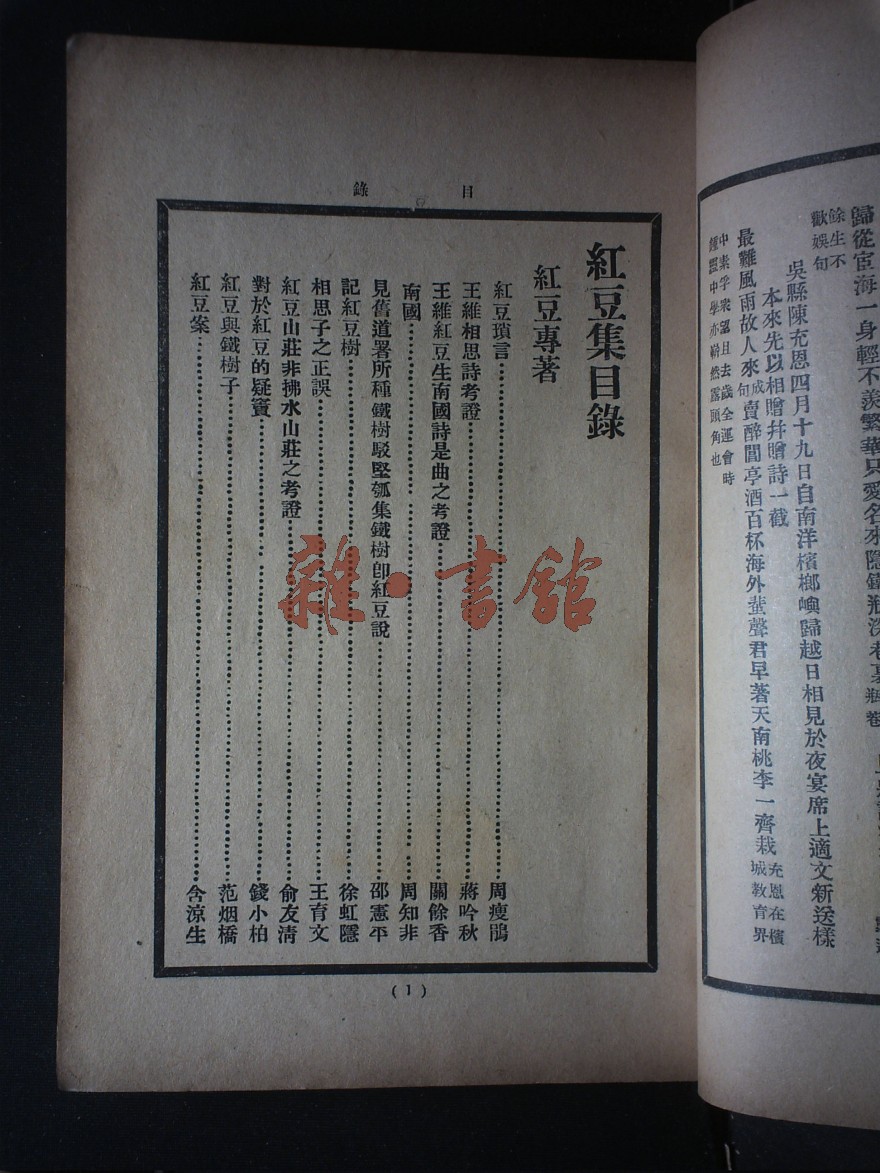 歸從宦海一身輕不羨繁華只愛名來隱鐵瓶深巷裏
餘生不
歡娛句
吳縣陳充恩四月十九日自南洋檳榔嶼歸越日相見於夜宴席上適文新送樣
本來先以相贈幷贈詩一截
最難風雨故人來成句賣醉閶亭酒百杯海外蜚聲君早著天南桃李一齊栽充恩在檳城敎育界
中素孚衆望且去歲全運會時
鍾靈中學亦嶄然露頭角也
目錄
紅豆集目錄
紅豆專著
紅豆瑣言 周瘦鵑
王維相思詩考證 蔣吟秋
王維紅豆生南國詩是曲之考證 關餘香
南國 周知非
見舊道署所種鐵樹駁堅瓠集鐵樹卽紅豆說 邵憲平
記紅豆樹 徐虹隱
相思子之正誤 王育文
紅豆山莊非拂水山莊之考證 俞友清
對於紅豆的疑竇 錢小柏
紅豆與鐵樹子 范烟橋
紅豆案 含涼生
(1)
雜·書館